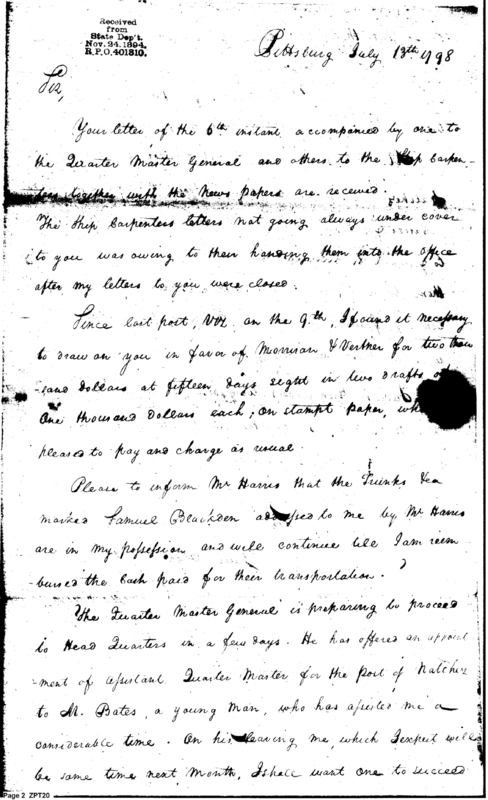 Received
from
State Dep't.
Nov. 24. 1894.
R.P.O. 401310.
Pittsburg July 13th 1798
Sir,
Your letter of the 6th instant accompanied by one to
the Quarter Master General and others to the Ship Carpen-
ters together with the News papers are received.
The Ship Carpenters letters not going always under cover
to you was owing to their handing them into the office
after my letters to you were closed.
Since last post, viz on the 9th, I found it necessary
to draw on you in favor of Morrison & Vertner for two thou
sand dollars at fifteen days sight in two drafts of
One thousand dollars each, on stampt paper, 
pleased to pay and charge as usual.
Please to inform Mr Harris that the Trunks &ca
marked Samuel Blackden addressed to me by Mr Harris
are in my possession and will continue till I am reim
bursed the Cash paid for their transportation.
The Quarter Master General is preparing to proceed
to Head Quarters in a few days. He has offered an appoint
ment of assistant Quarter Master for the Post of Natchez
to M. Bates, a young Man, who has assisted me a
considerable time. On his leaving me, which I expect will
be some time next month, I shall want one to succeed
Page 2 ZPT20